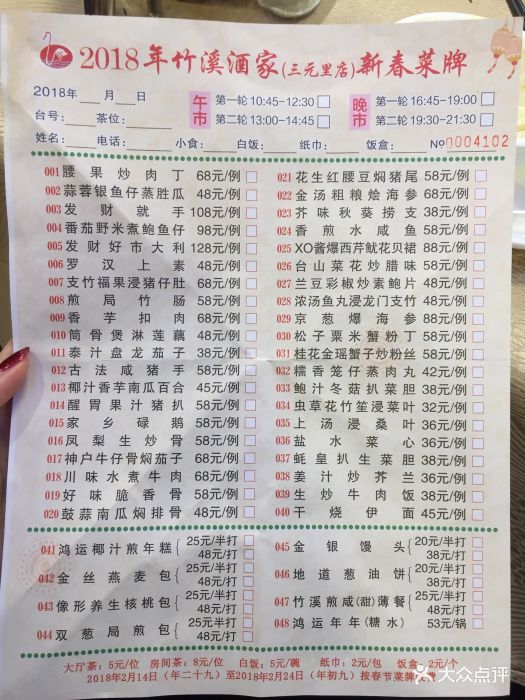 2018年竹溪酒家(三元里店)新春菜牌
2018年___月___日 午市 第一轮 10:45-12:30 晚市 第一轮 16:45-19:00
台号:___茶位:___ 第二轮 13:00-14:45 第二轮 19:30-21:30
姓名:___电话:___小食:___白饭:___纸巾:___饭盒:___ №0004102
001 腰果炒肉丁 68元/例
002 蒜蓉银鱼仔蒸胜瓜 48元/例
003 发财就手 108元/例
004 番茄野米煮鲍鱼仔 98元/例
005 发财好市大利 128元/例
006 罗汉上素 48元/例
007 支竹福果浸猪仔肚 68元/例
008 煎局竹肠 58元/例
009 香芋扣肉 68元/例
010 筒骨煲淋莲藕 48元/例
011 泰汁盘龙茄子 38元/例
012 古法咸猪手 58元/例
013 椰汁香芋南瓜百合 45元/例
014 醒胃果汁猪扒 58元/例
015 家乡碌鹅 58元/例
016 凤梨生炒骨 58元/例
017 神户牛仔骨焖茄子 68元/例
018 川味水煮牛肉 68元/例
019 好味脆香骨 58元/例
020 鼓蒜南瓜焖排骨 48元/例
021 花生红腰豆焖猪尾 58元/例
022 金汤粗粮烩海参 68元/例
023 芥味秋葵捞支 38元/例
024 香煎水咸鱼 58元/例
025 XO酱爆西芹鱿花贝裙 88元/例
026 台山菜花炒腊味 58元/例
027 兰豆彩椒炒素鲍片 48元/例
028 浓汤鱼丸浸龙门支竹 48元/例
029 京葱爆海参 88元/例
030 松子粟米蟹粉丁 58元/例
031 桂花金瑶蟹子炒粉丝 58元/例
032 糯香笼仔蒸肉丸 42元/例
033 鲍汁冬菇扒菜胆 38元/例
034 虫草花竹笙浸菜叶 32元/例
035 上汤浸桑叶 36元/例
036 盐水菜心 36元/例
037 蚝皇扒生菜胆 38元/例
038 姜汁炒芥兰 36元/例
039 生炒牛肉饭 38元/例
040 干烧伊面 45元/例
041 鸿运椰汁煎年糕 25元/半打 48元/打
042 金丝燕麦包 25元/半打 48元/打
043 像形养生核桃包 25元/半打 48元/打
044 双葱局煎包 25元/半打 48元/打
045 金银馒头 20元/半打 38元/打
046 地道葱油饼 20元/半打 38元/打
047 竹溪煎咸(甜)薄餐 25元/半打 48元/打
048 鸿运年年(糖水) 53元/锅
大厅茶: 5元/位 房间茶: 8元/位 白饭: 5元/碗 纸巾: 2元/包 饭盒: 2元/个
2018年2月14日(年二十九)至2018年2月24日(年初九)按春节菜牌
大众点评